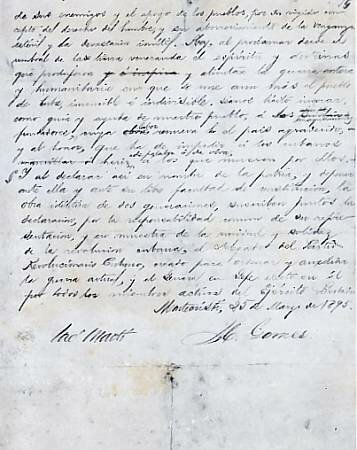 de sus enemigos y el apoyo de los pueblos, por su rígido con-
cepto del derecho del hombre, y su aborrecimiento de la venganza
estéril y la devastación inútil. Hoy, al proclamar desde el
umbral de la tierra venerada el espíritu y doctrinas
que produjeron y alientan la guerra entera
y humanitaria en que se une aun más el pueblo
de Cuba, invencible é indivisible, séanos lícito invocar,
como guía y ayuda de nuestro pueblo, á los magnánimos
fundadores, cuya labor renueva el país agradecido,
y al honor, que ha de impedir á los cubanos
herir, de palabra o de obra, á los que mueren por ellos.
Y al declarar así en nombre de la patria, y deponer
ante ella y ante su libre facultad de constitución, la
obra idéntica de dos generaciones, suscriben juntos la
declaración, por la responsabilidad común de su repre-
sentación, y en muestra de la unidad y solidez
de la revolución cubana, el Delegado del Partido
Revolucionario Cubano, creado para ordenar y auxiliar
la guerra actual, y el General en Jefe electo en él
por todos los miembros activos del Ejército Libertador.
Montecristi, 25 de Marzo de 1895.
José Martí M. Gomez